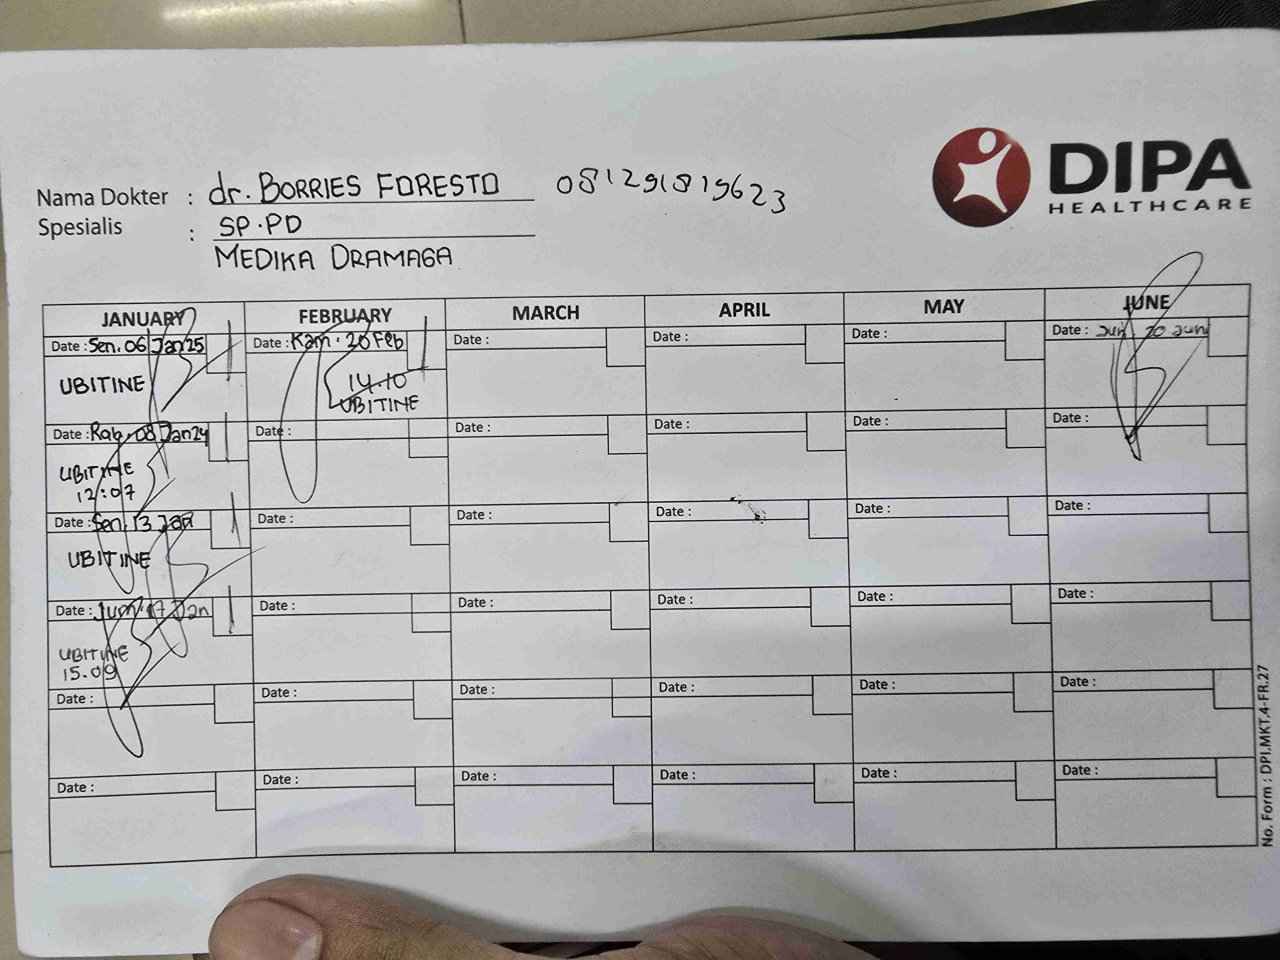 DIPA
HEALTHCARE
Nama Dokter : dr. BORRIES FORESTO 081291819623
Spesialis : SP.PD
MEDIKA DRAMAGA
JANUARY FEBRUARY MARCH APRIL MAY JUNE
Date : Sen. 06 Jan 25 Date : Kam. 20 Feb Date : Date : Date : Date : Jum 20 Juni
UBITINE 14.10
UBITINE
Date : Rab, 08 Jan 24 Date : Date : Date : Date : Date :
UBITINE
12:07
Date : Sen, 13 Jan Date : Date : Date : Date : Date :
UBITINE
Date : Jum, 17 Jan Date : Date : Date : Date : Date :
UBITINE
15.09
Date : Date : Date : Date : Date : Date :
Date : Date : Date : Date : Date : Date :
No. Form : DPI.MKT.4-FR.27